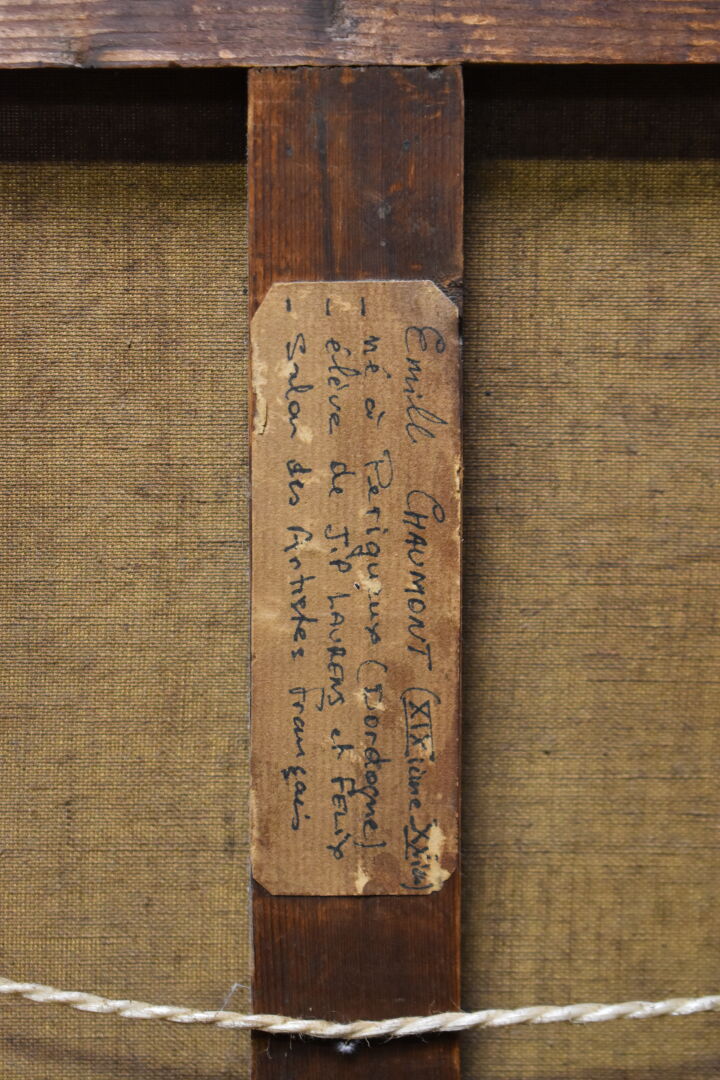 Emill CHAUMONT (XIXième XXième)
- né à Perigueux (Dordogne)
- élève de J.P LAURENS et FELIX
- Salon des Artistes français